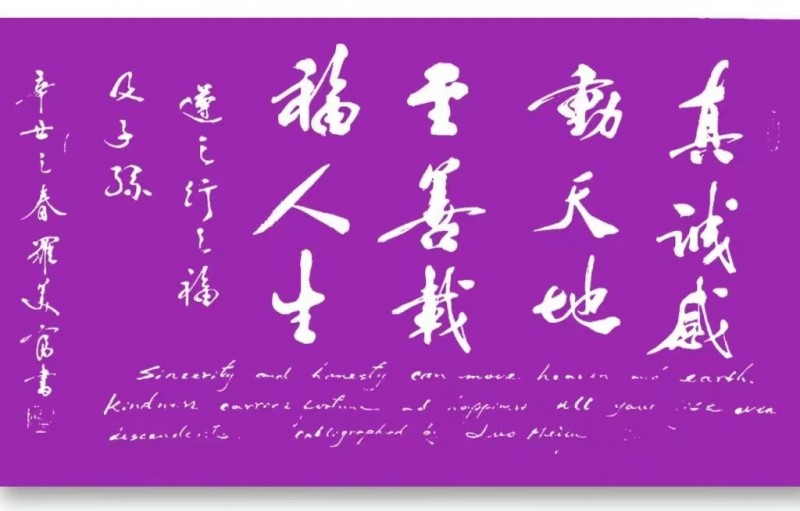 真诚感
動天地
至善载
福人生
遵之行之福
及子孫
辛丑之春羅美富書
Sincerity and honesty can move heaven and earth.
Kindness carries fortune and happiness all your life even
descendents. calligraphed by Luo